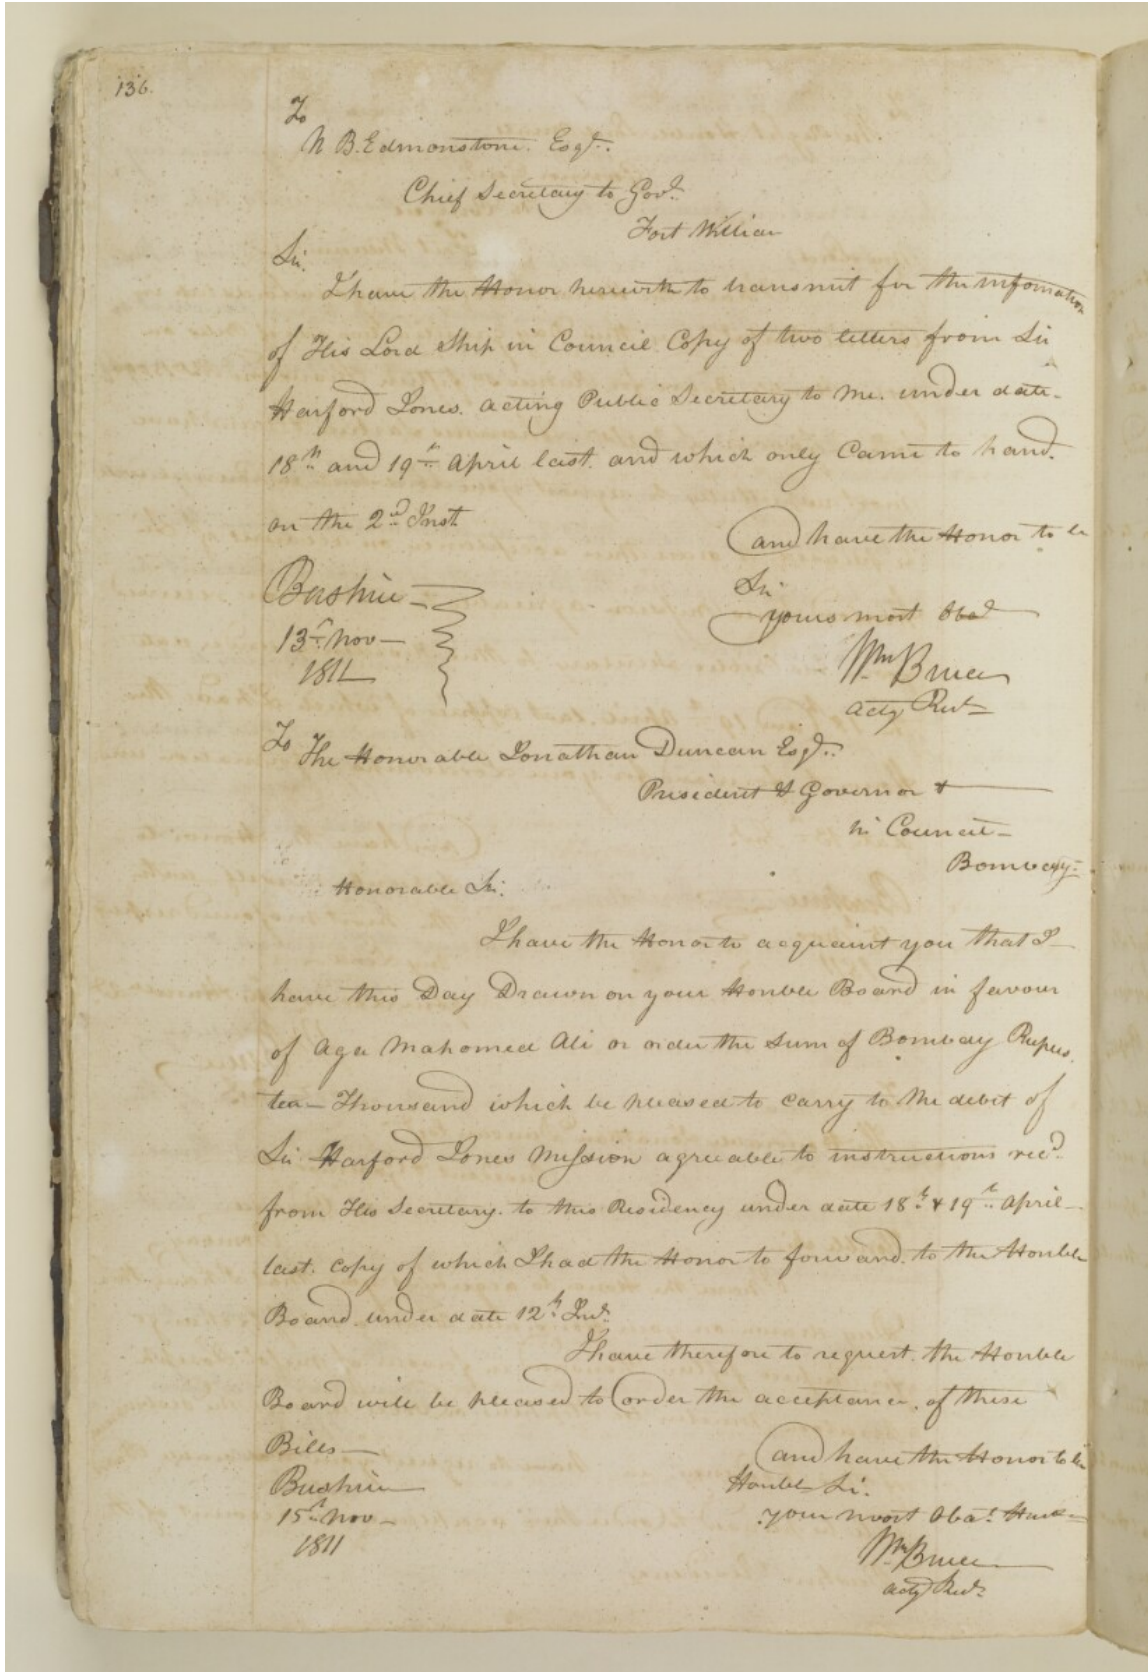 136.
To
N B. Edmonstone. Esqr.
Chief Secretary to Govt.
Fort William
Sir.
I have the Honor herewith to transmit for the information
of His Lord Ship in Council Copy of two letters from Sir
Harford Jones. acting Public Secretary to me. under date
18th and 19th April last. and which only Came to hand.
on the 2nd Inst
and have the Honor to be
Sir
yours most Obed
Bushire
13th Nov
1811
Wm Bruce
Actg Rest
To The Honorable Jonathan Duncan Esqr.
President & Governor &
in Council
Bombay
Honorable Sir.
I have the Honor to acquaint you that I
have this Day Drawn on your Honble Board in favour
of Aga Mahomed Ali or order the Sum of Bombay Rupees
ten Thousand which be pleased to carry to the debit of
Sir Harford Jones Mission agreeable to instructions recd.
from His Secretary. to this Residency under date 18th & 19th April
last. copy of which I had the Honor to forward. to the Honble
Board under date 12th Inst.
I have therefore to request. the Honble
Board will be pleased to order the acceptance. of these
Bills
and have the Honor to be
Honble Sir.
your most Obdt
Bushire
15th Nov
1811
Wm Bruce
actg Rest